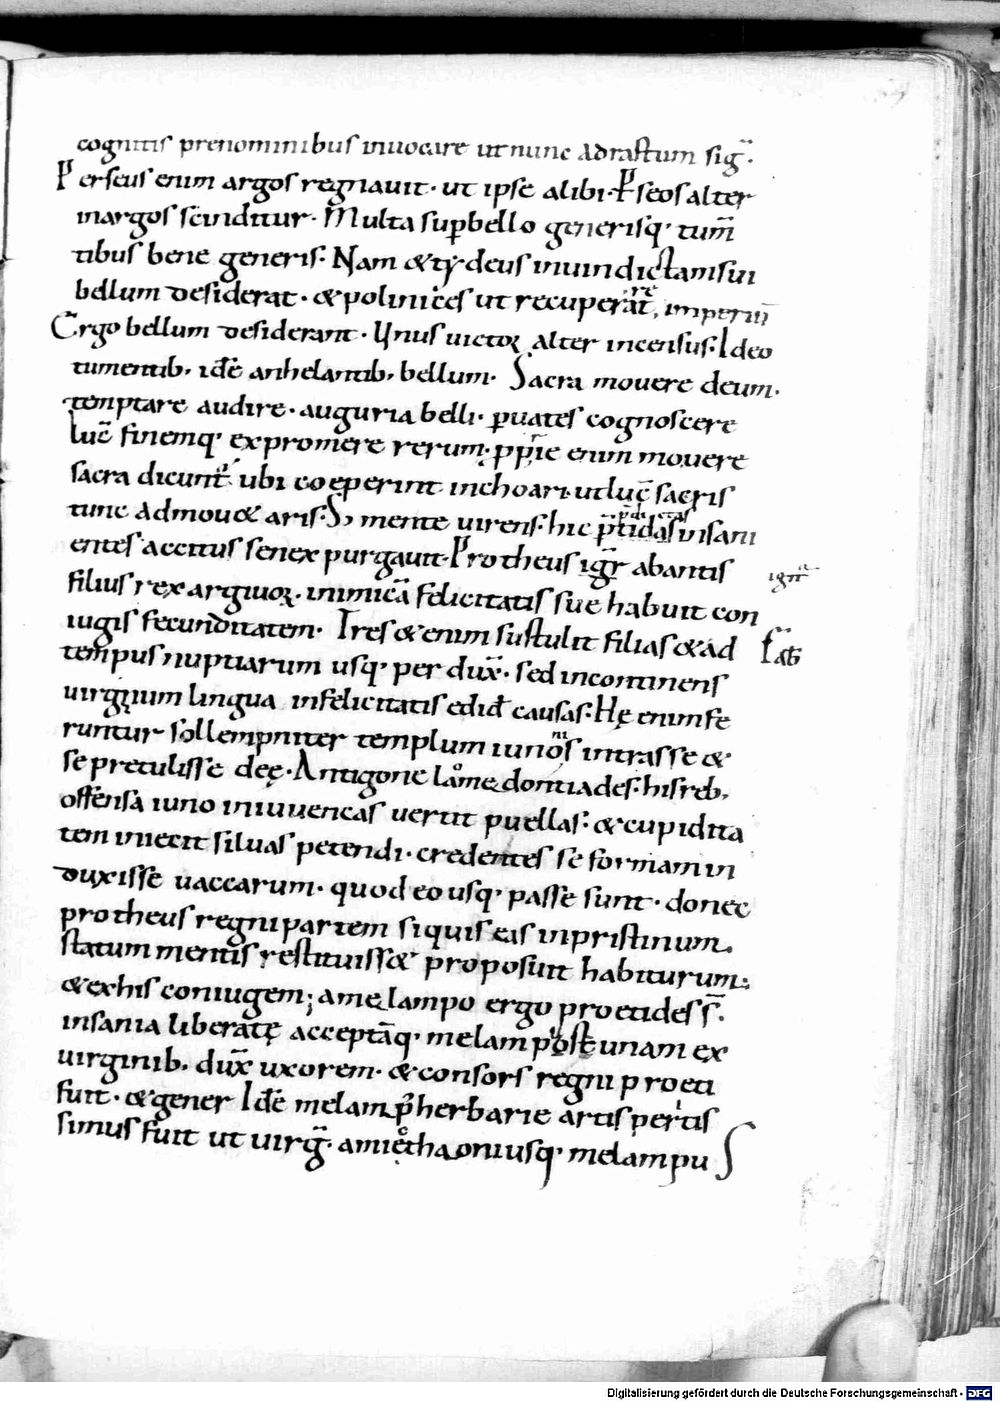 cognitis prenominibus inuocare ut nunc adrastum sig̅.
Perseus enim argos regnauit · ut ipse alibi · P̲seos alter
inargos scinditur · Multa sup̲bello generisq; tum̅
tibus bene generis · Nam &ty · deus inuindictamsui
bellum desiderat · &polinices ut recuperar&, imperiu̅
Ergo bellum desiderant · Unus uictor alter incensus · Ideo
tumentib; ide̅ anhelantib; bellum · Sacra mouere deum ·
temptare audire · auguria belli · p̲uates cognoscere
luc̅ finemq; expromere rerum · pp̅ie enim mouere
sacra dicunt̅ ubi coeperint inchoari utluc̅ sacris
tunc admou& aris · S; mente uirens · hic p̅tidas insani
entes accitus senex purgauit · Protheus igr̅ abantis
igr̅
filius rex argiuor̨ · inimica̅ felicitatis sue habuit con
iugis fecunditatem · Tres &enim sustulit filias &ad
tempus nuptiarum usq; per dux̅ · sed incontinens
uirginum lingua infelicitatis edid̅ causas · Hę enim fe
runtur sollempniter templum iunonis intrasse &
se pretulisse deę · Antigone laomedontiades · hisreb;
offensa iuno iniuuencas uertit puellas · &cupidita
tem iniecit siluas petendi · credentes se formam in
duxisse uaccarum · quod eo usq; passe sunt · donec
protheus regni partem siquis eas inpristinum
statum mentis restituiss& proposuit habiturum;
&exhis coniugem; amelampo ergo proetides s̅ ·
insania liberatę accepta̅q; melamp post unam ex
uirginib; dux̅ uxorem · &consors regni proeti
fuit · &gener Ide̅ melamp̅ herbarie artis peritis
simus fuit ut uirg̅ · amiethaoniusq; melampu S